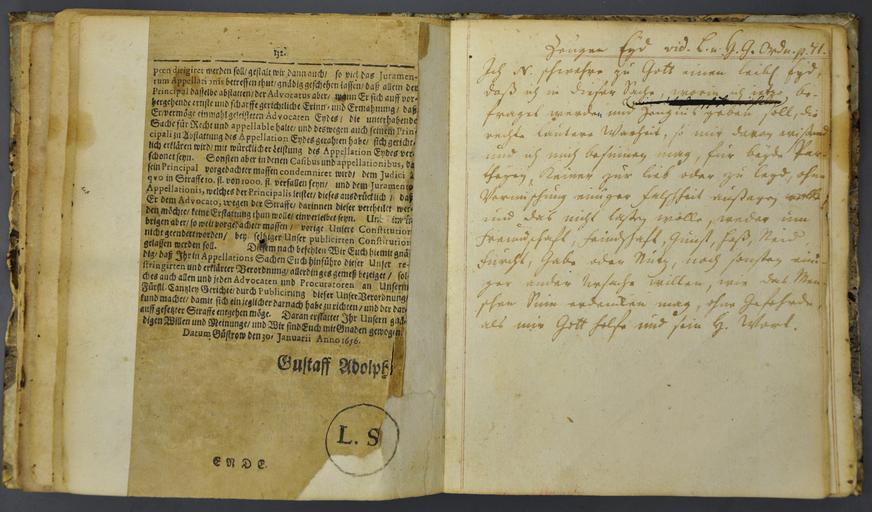 132.
pten dirigiret werden soll/ gestalt wir dann auch/ so viel das Juramen-
tum Appellationis betreffen thut/ gnädig geschehen lassen/ daß allein der
Principal dasselbe abstatten/ der Advocatus aber/ wann Er sich auff vor-
hergehende ernste und scharffe gerichtliche Erinn- und Ermahnung/ daß
Er vermöge einmahl geleisteten Advocaten Eydes/ die unterhabende
Sache für Recht und appellable halte/ und deswegen auch seinem Prin-
cipali zu Abstattung des Appellation Eydes gerathen habe/ sich gericht-
lich erklären wird/ mit würcklicher leistung des Appellation Eydes ver-
schonet seyn. Sonsten aber in denen Casibus und appellationibus, da
sein Principal vorgedachter massen condemniret wird/ dem Judici à
quo in Straffe 10. fl. von 1000. fl. verfallen seyn/ und dem Juramento
Appellationis, welches der Principalis leistet/ dieses ausdrücklich/ daß
Er dem Advocato, wegen der Straffe/ darinnen dieser vertheilet wer-
den möchte/ keine Erstattung thun wolle/ einverleibet seyn. Und im ü-
brigen aber/ so weit vorgedachter massen/ vorige Unsere Constitution
nicht geendert worden/ bey selbiger Unser publicirten Constitution
gelassen werden soll. Diesem nach befehlen Wir Euch hiemit gnä-
dig/ daß Ihr in Appellations Sachen Euch hinführo dieser Unser re-
stringirten und erklärter Verordnung/ allerdinges gemeß bezeiget/ sol-
ches auch allen und jeden Advocaten und Procuratoren an Unserm
Fürstl. Cantzley Gerichte/ durch Publicirung dieser Unser Verordnung/
kund machet/ damit sich ein jeglicher darnach habe zu richten/ und der dar-
auff gesetzter Straffe entgehen möge. Daran erstattet Ihr Unsern gnä-
digen Willen und Meinunge/ und Wir sind Euch mit Gnaden gewogen.
Datum Güstrow den 30. Januarii Anno 1656.
Gustaff Adolph
L. S
ENDE
Zeugen Eyd vid. L. u. H. G. Ordn. p. 71.
Ich N. schwehre zu Gott einen leibl. Eyd,
daß ich in dieser Sache, worin ich itzo be-
fraget werden und Zeugnis geben soll, die
rechte lautere Warheit, so mir davon wißend
und ich mich besinnen mag, für beyde Par-
theyen, keiner zur lieb oder zu leyd, ohne
Vermischung einiger falschheit außagen wolle
und das nicht laßen wolle, weder um
Freundschafft, Feindschafft, Gunst, Haß, Neid
Furcht, Gabe oder Nutz, noch sonsten eini-
ger ander Ursache willen wie das Men-
schen Sinn erdencken mag, ohne Gefehrde,
als mir Gott helffe und sein H. Wort.